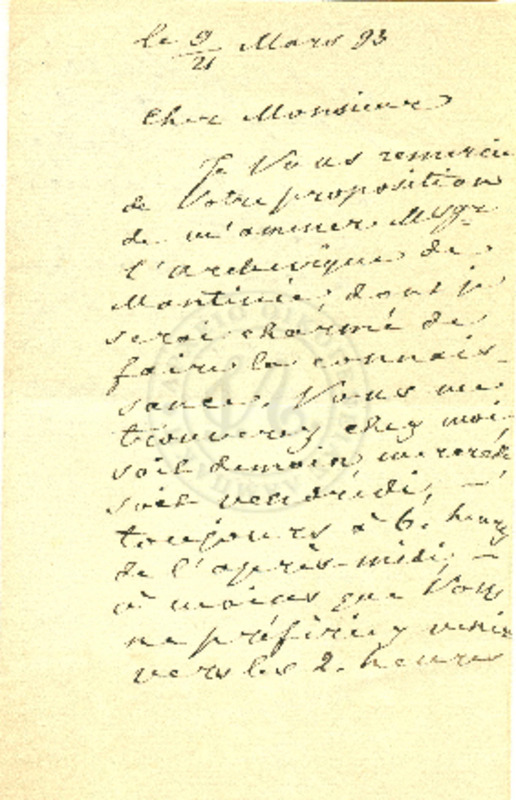 le 9/21 Mars 93
Cher Monsieur
Je Vous remercie
de Votre proposition
de m'amener Msgr
l'archevêque de
Mantinie, dont je
serai charmé de
faire la connais-
sance. Vous me
trouverez chez moi,
soit demain, mercredi
soit vendredi, —
toujours à 6. heures
de l'après-midi, —
à moins que Vous
ne préfériez venir
vers les 2. heures